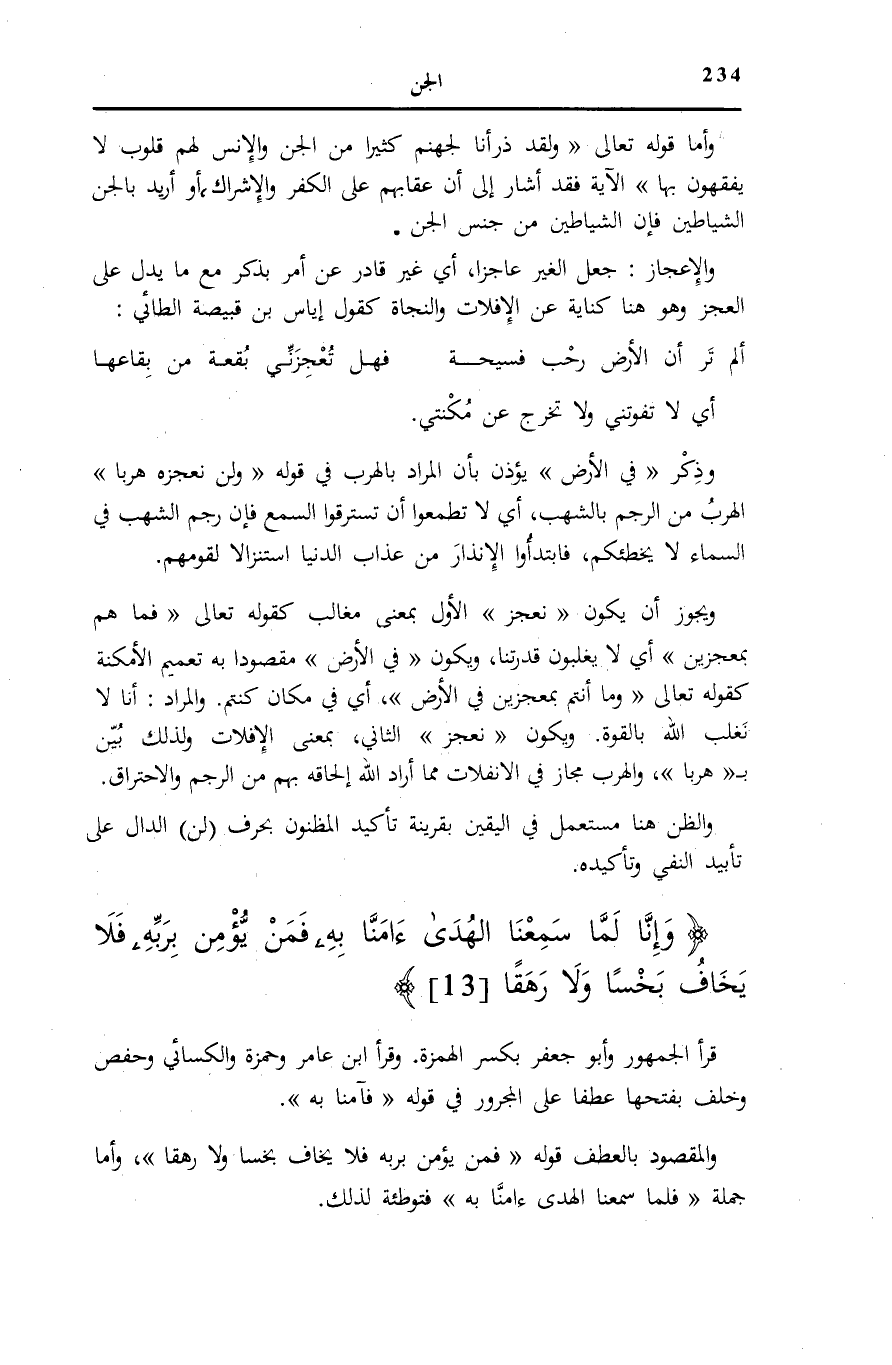 234
الجن
وأما قوله تعالى « ولقد ذرأنا لجهنم كثيرا من الجن والإنس لهم قلوب لا
يفقهون بها » الآية فقد أشار إلى أن عقابهم على الكفر والإشراك، أو أريد بالجن
الشياطين فإن الشياطين من جنس الجن .
والإعجاز : جعل الغير عاجزا، أي غير قادر عن أمر بذكر مع ما يدل على
العجز وهو هنا كناية عن الإفلات والنجاة كقول إياس بن قبيصة الطائي :
ألم تَر أن الأرض رحْب فسيحـــة فهـل تُعْجِزَنِّـي بُقعـة من بِقاعهـا
أي لا تفوتني ولا تخرج عن مُكْنتي.
وذِكْر « في الأرض » يؤذن بأن المراد بالهرب في قوله « ولن نعجزه هربا »
الهربُ من الرجم بالشهب، أي لا تطمعوا أن تسترقوا السمع فإن رجم الشهب في
السماء لا يخطئكم، فابتدأُوا الإنذارَ من عذاب الدنيا استنزالا لقومهم.
ويجوز أن يكون « نعجز » الأول بمعنى مغالب كقوله تعالى « فما هم
بمعجزين » أي لا يغلبون قدرتنا، ويكون « في الأرض » مقصودا به تعميم الأمكنة
كقوله تعالى « وما أنتم بمعجزين في الأرض »، أي في مكان كنتم. والمراد : أنا لا
نَغلب الله بالقوة. ويكون « نعجز » الثاني، بمعنى الإفلات ولذلك بُيّن
بـ« هربا »، والهرب مجاز في الانفلات مما أراد الله إلحاقه بهم من الرجم والاحتراق.
والظن هنا مستعمل في اليقين بقرينة تأكيد المظنون بحرف (لن) الدال على
تأبيد النفي وتأكيده.
﴿ وَإِنَّا لَمَّا سَمِعْنَا الهُدَىٰ ءَامَنَّا بِهِۦ فَمَنْ يُّؤْمِن بِرَبِّهِۦ فَلَا
يَخَافُ بَخْسًا وَلَا رَهَقًا [13] ﴾
قرأ الجمهور وأبو جعفر بكسر الهمزة. وقرأ ابن عامر وحمزة والكسائي وحفص
وخلف بفتحها عطفا على المجرور في قوله « فآمنا به ».
والمقصود بالعطف قوله « فمن يؤمن بربه فلا يخاف بخسا ولا رهقا »، وأما
جملة « فلما سمعنا الهدى ءامنَّا به » فتوطئة لذلك.